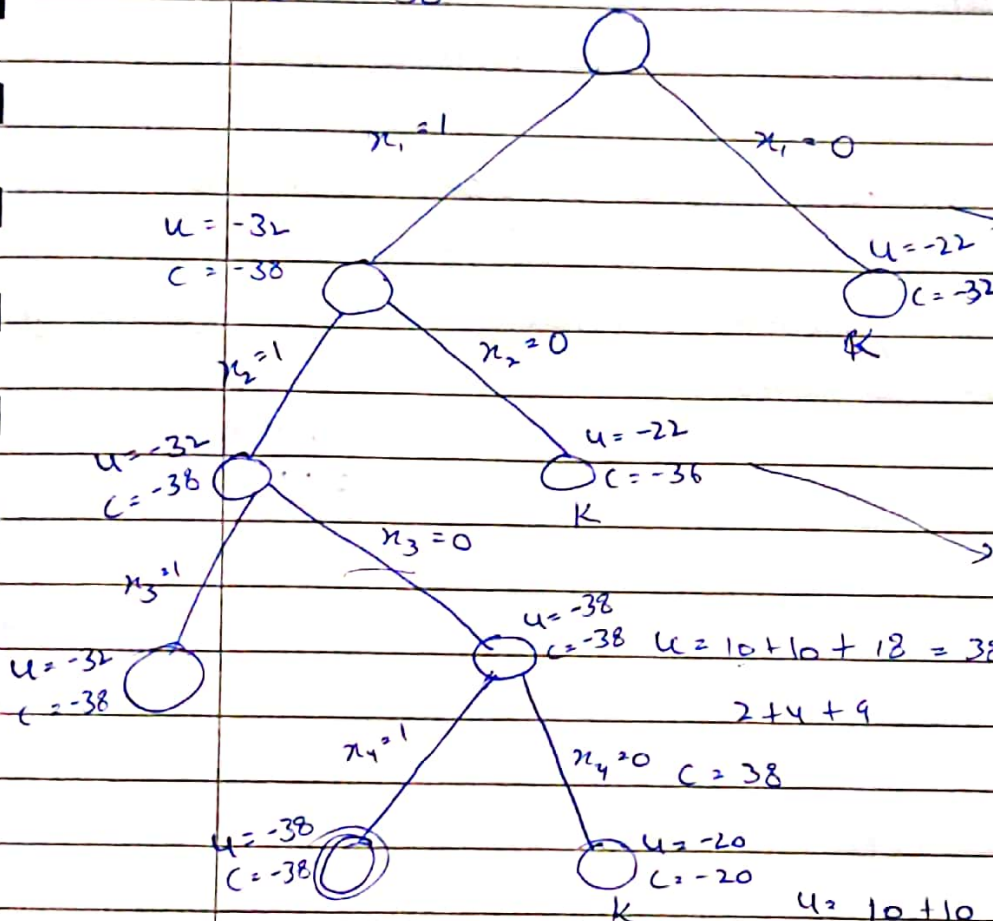 x₁ = 1
x₁ = 0
u = -32
c = -38
u = -22
c = -32
K
x₂ = 1
x₂ = 0
u = -32
c = -38
u = -22
c = -36
K
x₃ = 1
x₃ = 0
u = -32
c = -38
u = -38
c = -38
u = 10 + 10 + 18 = 38
2 + 4 + 9
x₄ = 1
x₄ = 0
c = 38
u = -38
c = -38
u = -20
c = -20
K
u = 10 + 10